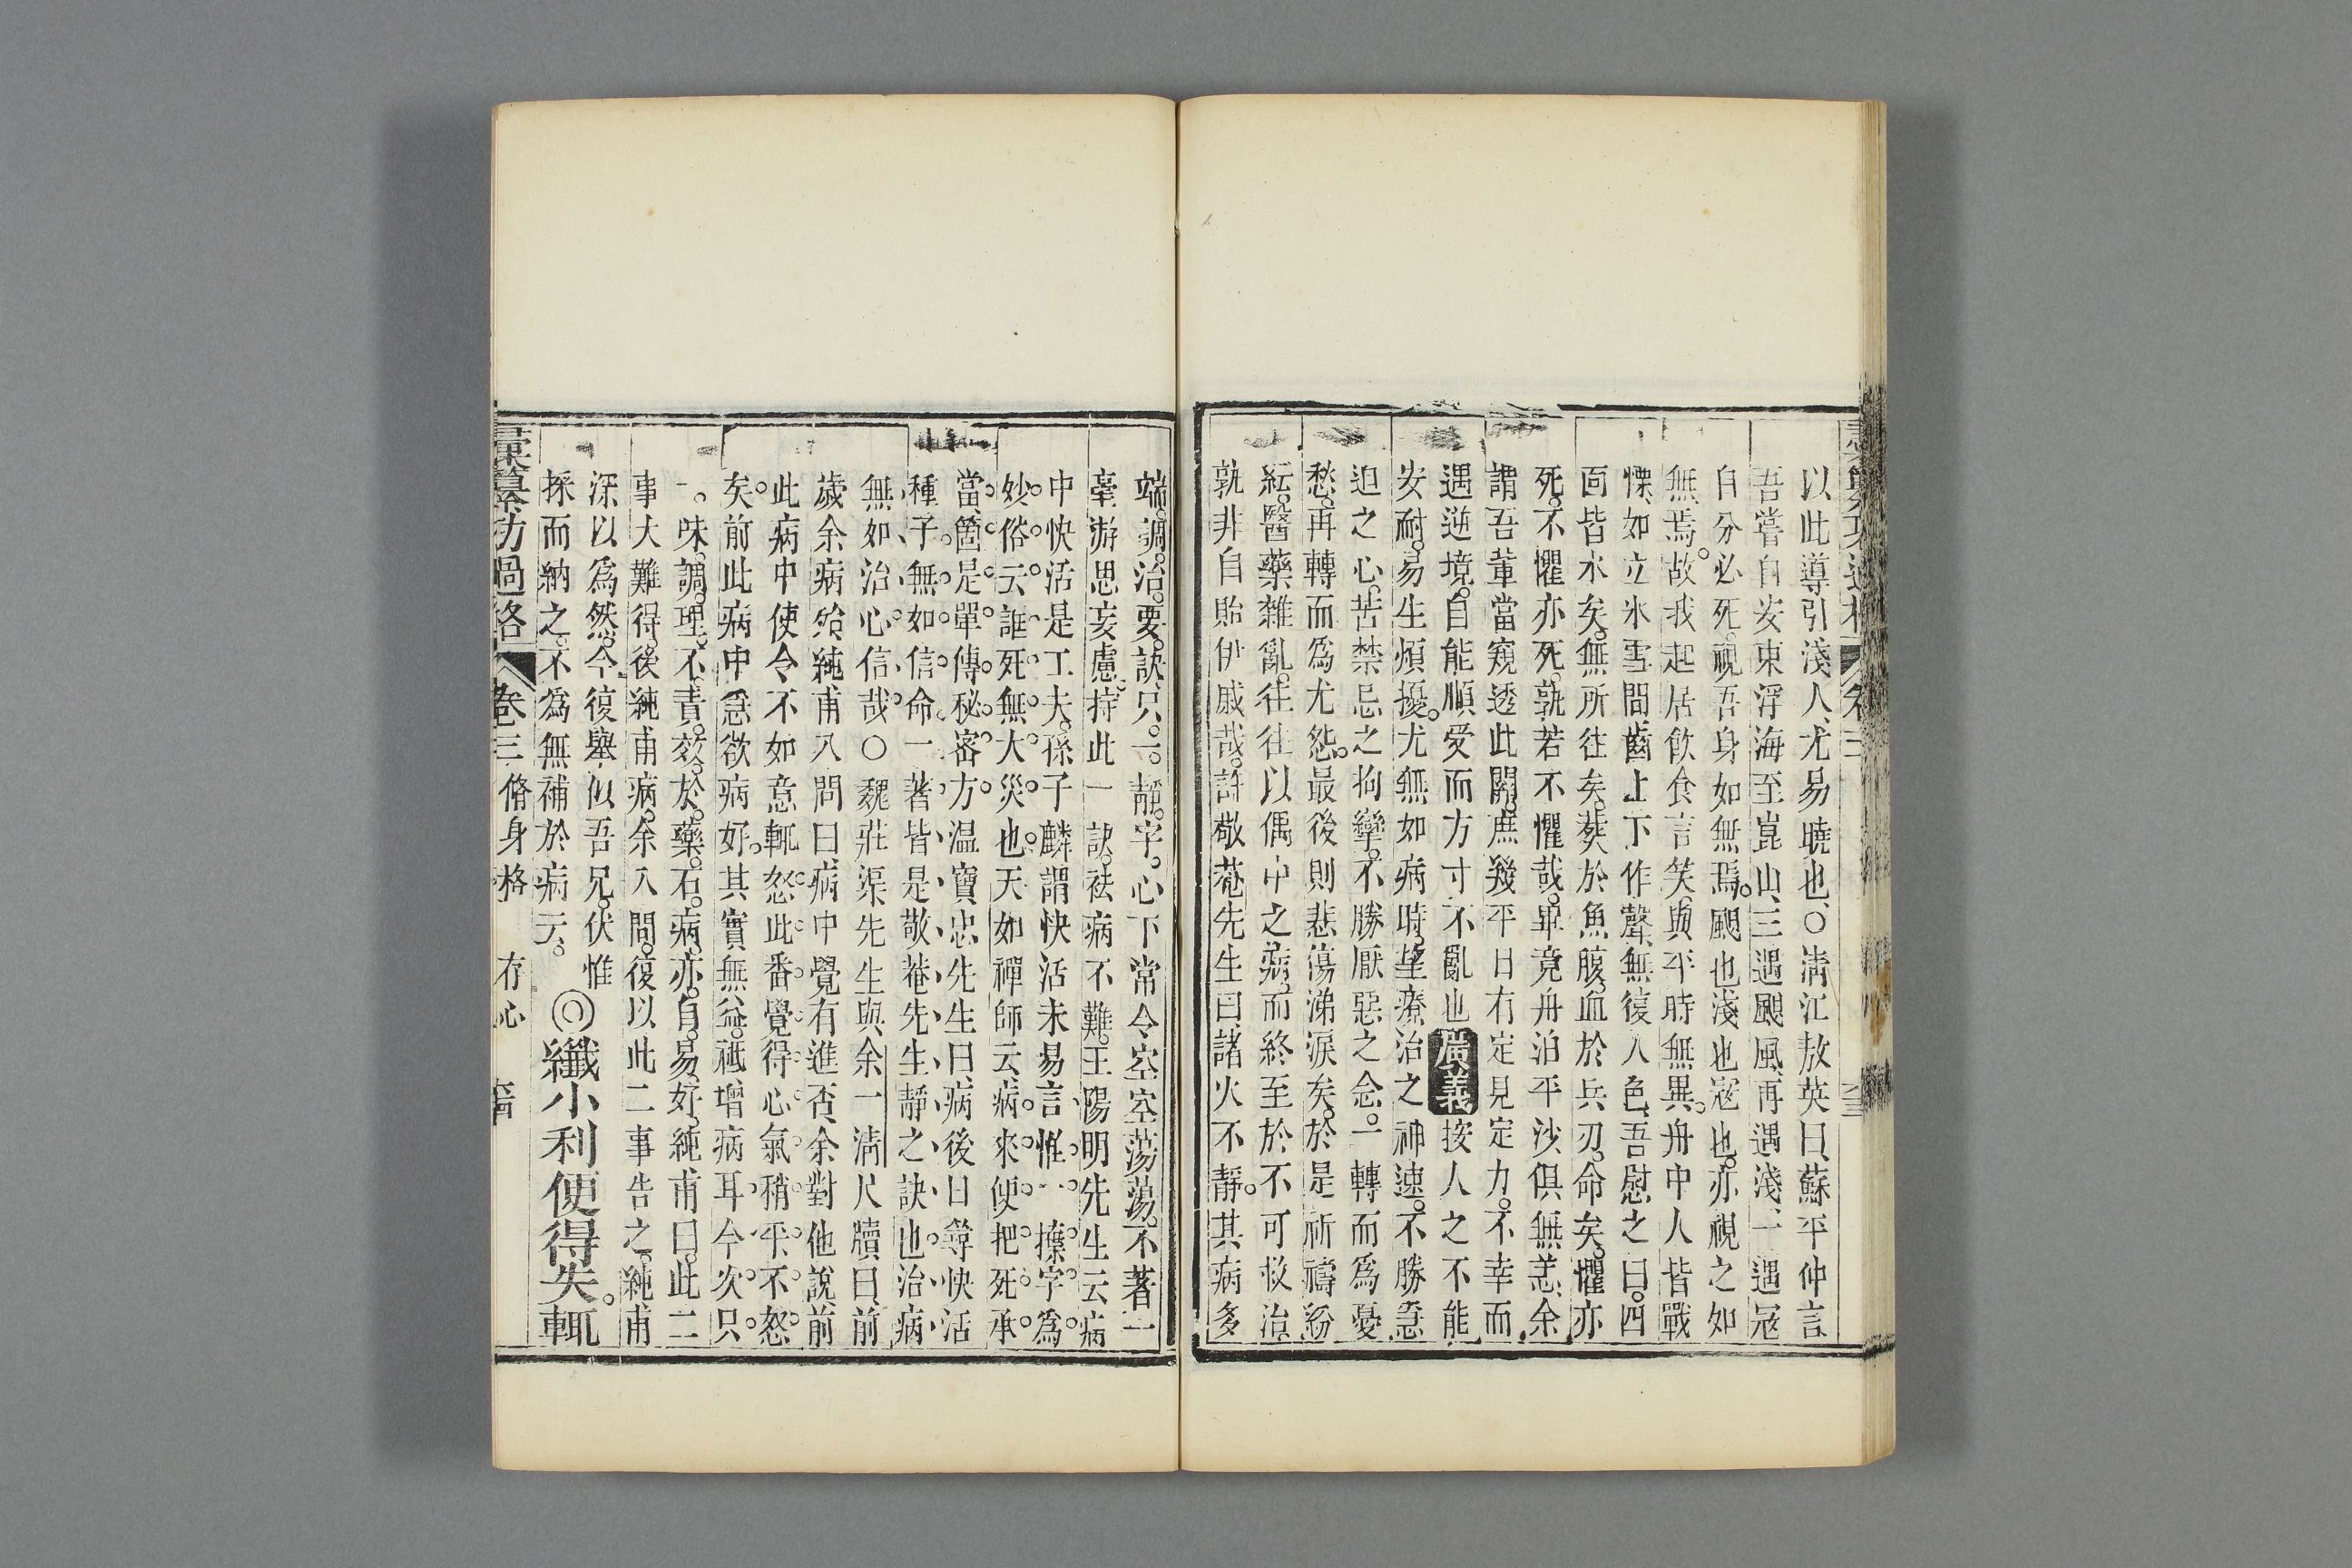 以此導引淺人、尤易曉也、○清江敖英曰、蘇平仲言
吾嘗自安東浮海至崑山、三遇颶風、再遇淺、一遇寇
自分必死。視吾身如無焉。颶也淺也寇也。亦視之如
無焉。故我起居飲食言笑、與平時無異。舟中人皆戰
慄、如立氷雪間、齒上下作聲、無復人色、吾慰之曰。四
面皆水矣。無所往矣。葬於魚腹、血於兵刃。命矣。懼亦
死。不懼亦死。孰若不懼哉。畢竟舟泊平沙、俱無恙、余
謂吾輩當窺透此關。庶幾平日有定見定力。不幸而
遇逆境。自能順受而方寸不亂也廣義按人之不能
安耐。易生煩擾。尤無如病時。望療治之神速。不勝急
迫之心。苦禁忌之拘攣。不勝厭惡之念。一轉而爲憂
愁。再轉而爲尤怨。最後則悲傷涕淚矣。於是祈禱紛
紜。醫藥雜亂。往往以偶中之病、而終至於不可救治、
孰非自貽伊戚哉。許敬菴先生曰、諸火不靜。其病多
端。調。治。要。訣、只。一。靜。字。心下常令空空蕩蕩。不著一
毫游思妄慮、持此一訣。祛病不難。王陽明先生云病
中快活是工夫。孫子麟謂快活未易言、惟一撫字爲
妙。俗云誰死無大災也。天如禪師云、病來便把死承
當、箇是單傳秘密方。温寶忠先生曰、病後日尋快活
種子、無如信命一著、皆是敬菴先生靜之訣也。治病
無如治心、信哉○魏莊渠先生與余一淸尺牘曰、前
歲余病、給純甫入問曰、病中覺有進否、余對他說、前
此病中使令不如意輒怒、此番覺得心氣稍平、不怒
矣。前此病中急欲病好。其實無益。祗增病耳、今次只
一。味。調。理。不。責。效。於。藥。石。病。亦。自。易。好、純甫曰。此二
事大難得。後純甫病。余入問。復以此二事告之。純甫
深以爲然。今復舉似吾兄。伏惟
採而納之。不爲無補於病云。◎纖小利便得失。輒
彙纂功過格 卷三 脩身格 存心